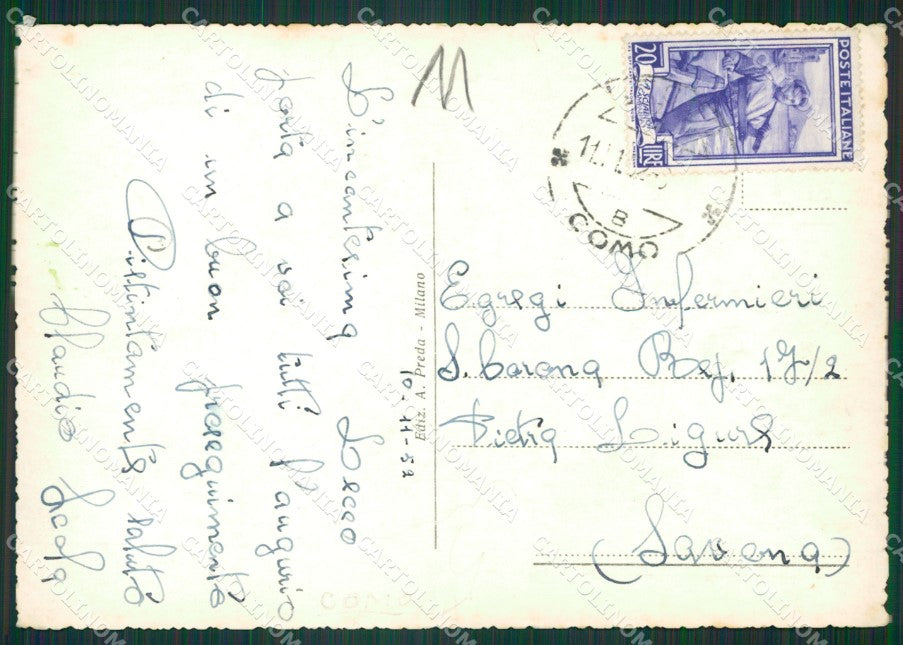 11
L'incantesimo Lecco
porta a voi tutti l'augurio
di un buon proseguimento
Distintamente saluto
Claudio
10-11-52
Ediz. A. Preda - Milano
POSTE ITALIANE
20 LIRE
B
COMO
Egregi Infermieri
S. Corona Rep. 17/2
Pietra Ligure
(Savona)
COMO
CARTOLINOMANIA